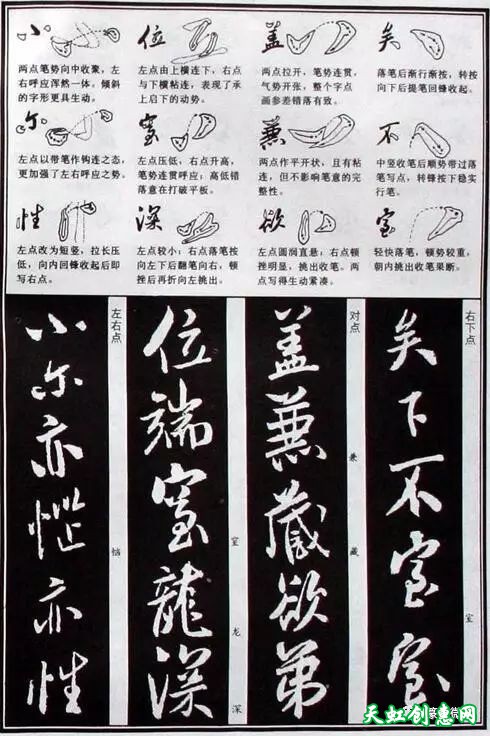 小
两点笔势向中收聚，左
右呼应浑然一体。倾斜
的字形更具生动。
位
左点由上横连下，右点
与下横粘连，表现了承
上启下的动势。
盖
两点拉开，笔势连贯，
气势开张，整个字点
画参差错落有致。
矣
落笔后渐行渐按，转按
向下后提笔回锋收起。
尔
左点以带笔作钩连之态，
更加强了左右呼应之势。
室
左点压低，右点升高，
笔势连贯呼应；高低错
落意在打破平板。
兼
两点作平开状，且有粘
连，但不影响笔意的完
整性。
不
中竖收笔后顺势带过落
笔写点，转锋按下稳实
行笔。
性
左点改为短竖，拉长压
低，向内回锋收起后即
写右点。
深
左点较小；右点落笔按
向左下后翻笔向右，顿
挫后再折向左挑出。
欲
左点圆润直悬；右点顿
挫明显，挑出收笔。两
两点写得生动紧凑。
室
轻快落笔，顿势较重，
朝内挑出收笔果断。
右下点
矣
下
不
室
室
室
对点
盖
兼
藏
欲
弟
兼
藏
位
端
室
龍
深
室
龙
深
左右点
小
尔
亦
恼
亦
性
恼
天虹创意网